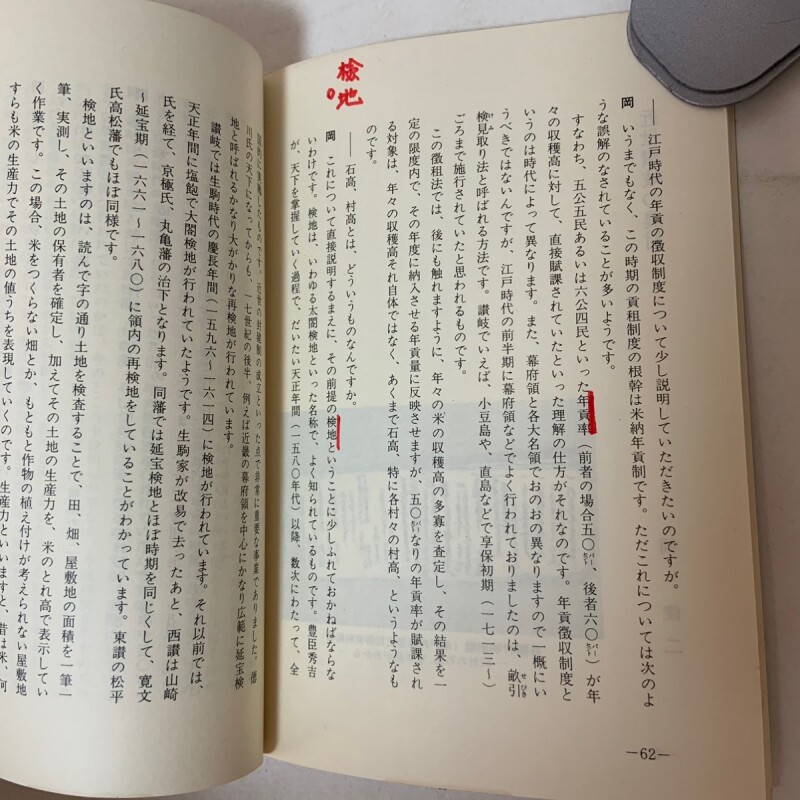 検地
――江戸時代の年貢の徴収制度について少し説明していただきたいのですが。
岡　いうまでもなく、この時期の貢租制度の根幹は米納年貢制です。ただこれについては次のよ
うな誤解のなされていることが多いようです。
すなわち、五公五民あるいは六公四民といった年貢率（前者の場合五〇パーセント、後者六〇パーセント）が年
々の収穫高に対して、直接賦課されていたといった理解の仕方がそれなのです。年貢徴収制度と
いうのは時代によって異なります。また、幕府領と各大名領でおのおの異なりますので一概にい
うべきではないんですが、江戸時代の前半期に幕府領などでよく行われておりましたのは、畝引
検見取り法と呼ばれる方法です。讃岐でいえば、小豆島や、直島などで享保初期（一七一三～
ごろまで施行されていたと思われるものです。
この徴租法では、後にも触れますように、年々の米の収穫高の多寡を査定し、その結果を一
定の限度内で、その年度に納入させる年貢量に反映させますが、五〇パーセントなりの年貢率が賦課され
る対象は、年々の収穫高それ自体ではなく、あくまで石高、特に各村々の村高、というようなも
のです。
――石高、村高とは、どういうものなんですか。
岡　これについて直接説明するまえに、その前提の検地ということに少しふれておかねばならな
いわけです。検地は、いわゆる太閤検地といった名称で、よく知られているものです。豊臣秀吉
が、天下を掌握していく過程で、だいたい天正年間（一五八〇年代）以降、数次にわたって、全
―62―
国的に実施したものです。近世の封建制の成立といった点で非常に重要な事業でありました。徳
川氏の天下になってからも、一七世紀の後半、例えば近畿の幕府領を中心にかなり広範に延宝検
地と呼ばれるかなり大がかりな再検地が行われています。
讃岐では生駒時代の慶長年間（一五九六～一六一四）に検地が行われています。それ以前では、
天正年間に塩飽で太閤検地が行われていたようです。生駒家が改易で去ったあと、西讃は山崎
氏を経て、京極氏、丸亀藩の治下となります。同藩では延宝検地とほぼ時期を同じくして、寛文
～延宝期（一六六一～一六八〇）に領内の再検地をしていることがわかっています。東讃の松平
氏高松藩でもほぼ同様です。
検地といいますのは、読んで字の通り土地を検査することで、田、畑、屋敷地の面積を一筆一
筆、実測し、その土地の保有者を確定し、加えてその土地の生産力を、米のとれ高で表示してい
く作業です。この場合、米をつくらない畑とか、もともと作物の植え付けが考えられない屋敷地
すらも米の生産力でその土地の値うちを表現していくのです。生産力といいますと、昔は米、何